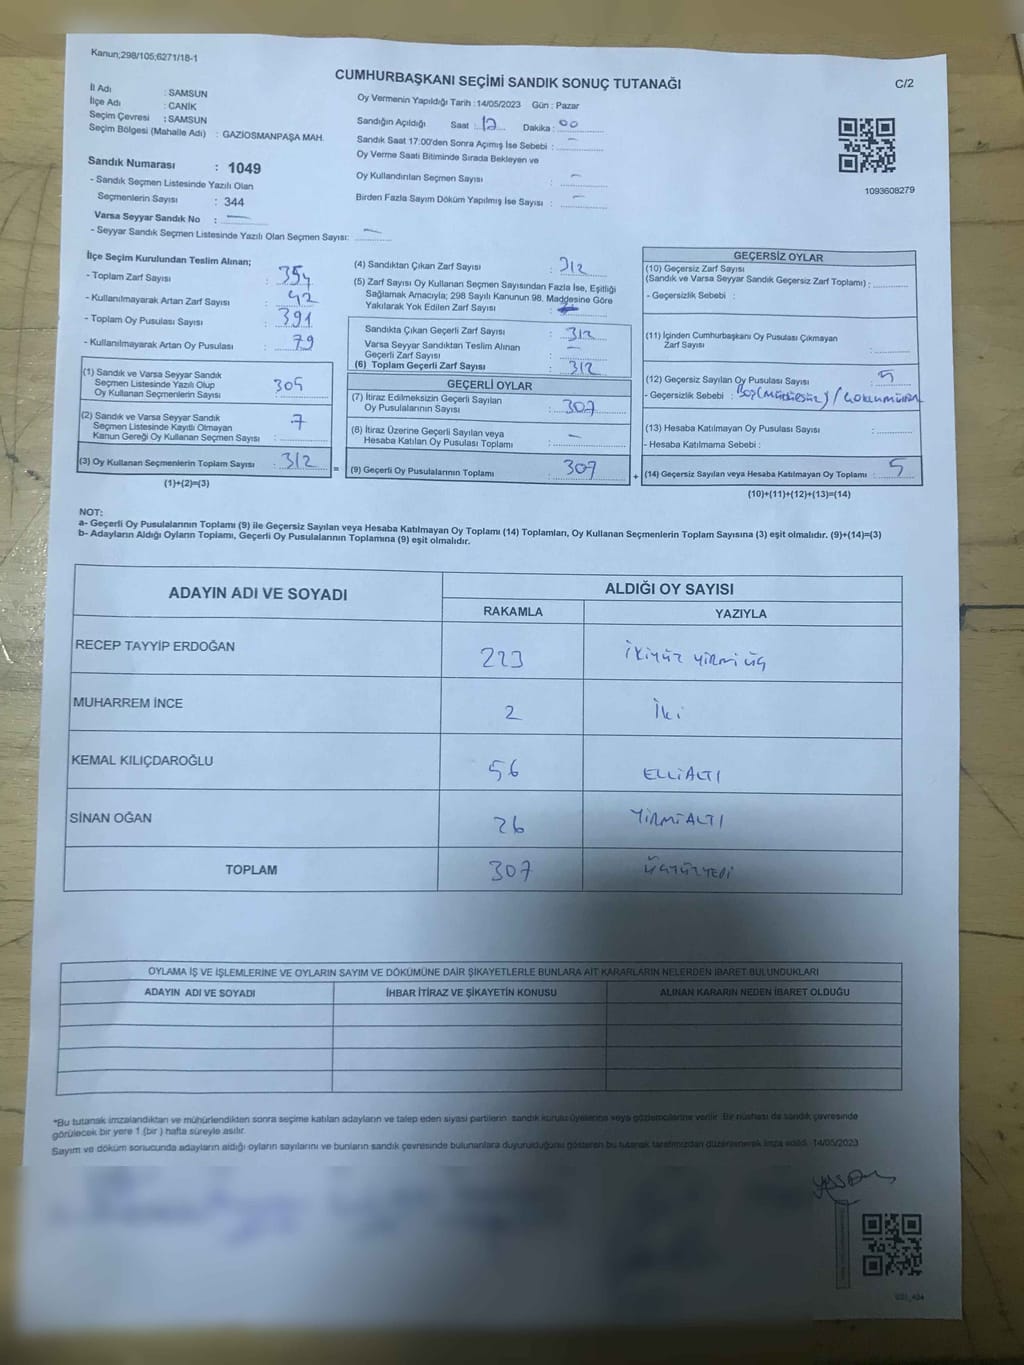 Kanun;298/105;6271/18-1
CUMHURBAŞKANI SEÇİMİ SANDIK SONUÇ TUTANAĞI
C/2
İl Adı : SAMSUN
İlçe Adı : CANİK
Seçim Çevresi : SAMSUN
Seçim Bölgesi (Mahalle Adı) : GAZİOSMANPAŞA MAH.
Sandık Numarası : 1049
- Sandık Seçmen Listesinde Yazılı Olan
Seçmenlerin Sayısı : 344
Varsa Seyyar Sandık No : —
- Seyyar Sandık Seçmen Listesinde Yazılı Olan Seçmen Sayısı: —
Oy Vermenin Yapıldığı Tarih : 14/05/2023 Gün : Pazar
Sandığın Açıldığı Saat : 17 Dakika : 00
Sandık Saat 17:00'den Sonra Açımış İse Sebebi : —
Oy Verme Saati Bitiminde Sırada Bekleyen ve
Oy Kullandırılan Seçmen Sayısı : —
Birden Fazla Sayım Döküm Yapılmış İse Sayısı : —
1093608279
İlçe Seçim Kurulundan Teslim Alınan;
- Toplam Zarf Sayısı : 354
- Kullanılmayarak Artan Zarf Sayısı : 42
- Toplam Oy Pusulası Sayısı : 391
- Kullanılmayarak Artan Oy Pusulası : 79
(1) Sandık ve Varsa Seyyar Sandık
Seçmen Listesinde Yazılı Olup
Oy Kullanan Seçmenlerin Sayısı : 305
(2) Sandık ve Varsa Seyyar Sandık
Seçmen Listesinde Kayıtlı Olmayan
Kanun Gereği Oy Kullanan Seçmen Sayısı : 7
(3) Oy Kullanan Seçmenlerin Toplam Sayısı : 312
(1)+(2)=(3)
(4) Sandıktan Çıkan Zarf Sayısı : 312
(5) Zarf Sayısı Oy Kullanan Seçmen Sayısından Fazla İse, Eşitliği
Sağlamak Amacıyla; 298 Sayılı Kanunun 98. Maddesine Göre
Yakılarak Yok Edilen Zarf Sayısı :
Sandıkta Çıkan Geçerli Zarf Sayısı : 312
Varsa Seyyar Sandıktan Teslim Alınan
Geçerli Zarf Sayısı : —
(6) Toplam Geçerli Zarf Sayısı : 312
GEÇERLİ OYLAR
(7) İtiraz Edilmeksizin Geçerli Sayılan
Oy Pusulalarının Sayısı : 307
(8) İtiraz Üzerine Geçerli Sayılan veya
Hesaba Katılan Oy Pusulası Toplamı : —
= (9) Geçerli Oy Pusulalarının Toplamı : 307
GEÇERSİZ OYLAR
(10) Geçersiz Zarf Sayısı
(Sandık ve Varsa Seyyar Sandık Geçersiz Zarf Toplamı) :
- Geçersizlik Sebebi :
(11) İçinden Cumhurbaşkanı Oy Pusulası Çıkmayan
Zarf Sayısı :
(12) Geçersiz Sayılan Oy Pusulası Sayısı : 5
- Geçersizlik Sebebi : BOŞ (MÜHÜRSÜZ) /
(13) Hesaba Katılmayan Oy Pusulası Sayısı :
- Hesaba Katılmama Sebebi :
+ (14) Geçersiz Sayılan veya Hesaba Katılmayan Oy Toplamı : 5
(10)+(11)+(12)+(13)=(14)
NOT:
a- Geçerli Oy Pusulalarının Toplamı (9) ile Geçersiz Sayılan veya Hesaba Katılmayan Oy Toplamı (14) Toplamları, Oy Kullanan Seçmenlerin Toplam Sayısına (3) eşit olmalıdır. (9)+(14)=(3)
b- Adayların Aldığı Oyların Toplamı, Geçerli Oy Pusulalarının Toplamına (9) eşit olmalıdır.
ADAYIN ADI VE SOYADI ALDIĞI OY SAYISI
RAKAMLA YAZIYLA
RECEP TAYYİP ERDOĞAN 223 İKİYÜZ YİRMİ ÜÇ
MUHARREM İNCE 2 İki
KEMAL KILIÇDAROĞLU 56 ELLİALTI
SİNAN OĞAN 26 YİRMİALTI
TOPLAM 307 ÜÇYÜZYEDİ
OYLAMA İŞ VE İŞLEMLERİNE VE OYLARIN SAYIM VE DÖKÜMÜNE DAİR ŞİKAYETLERLE BUNLARA AİT KARARLARIN NELERDEN İBARET BULUNDUKLARI
ADAYIN ADI VE SOYADI İHBAR İTİRAZ VE ŞİKAYETİN KONUSU ALINAN KARARIN NEDEN İBARET OLDUĞU
*Bu tutanak imzalandıktan ve mühürlendikten sonra seçime katılan adayların ve talep eden siyasi partilerin sandık kurulu üyelerine veya gözlemcilerine verilir. Bir nüshası da sandık çevresinde
görülecek bir yere 1 (bir ) hafta süreyle asılır.
Sayım ve döküm sonucunda adayların aldığı oyların sayılarını ve bunların sandık çevresinde bulunanlara duyurulduğunu gösteren bu tutanak tarafımızdan düzenlenerek imza edildi. 14/05/2023